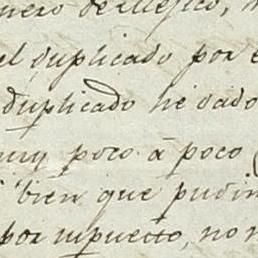 nero de Mexico,
el duplicado por
duplicado he dado
muy poco a poco
bien que pudi
por supuesto, no